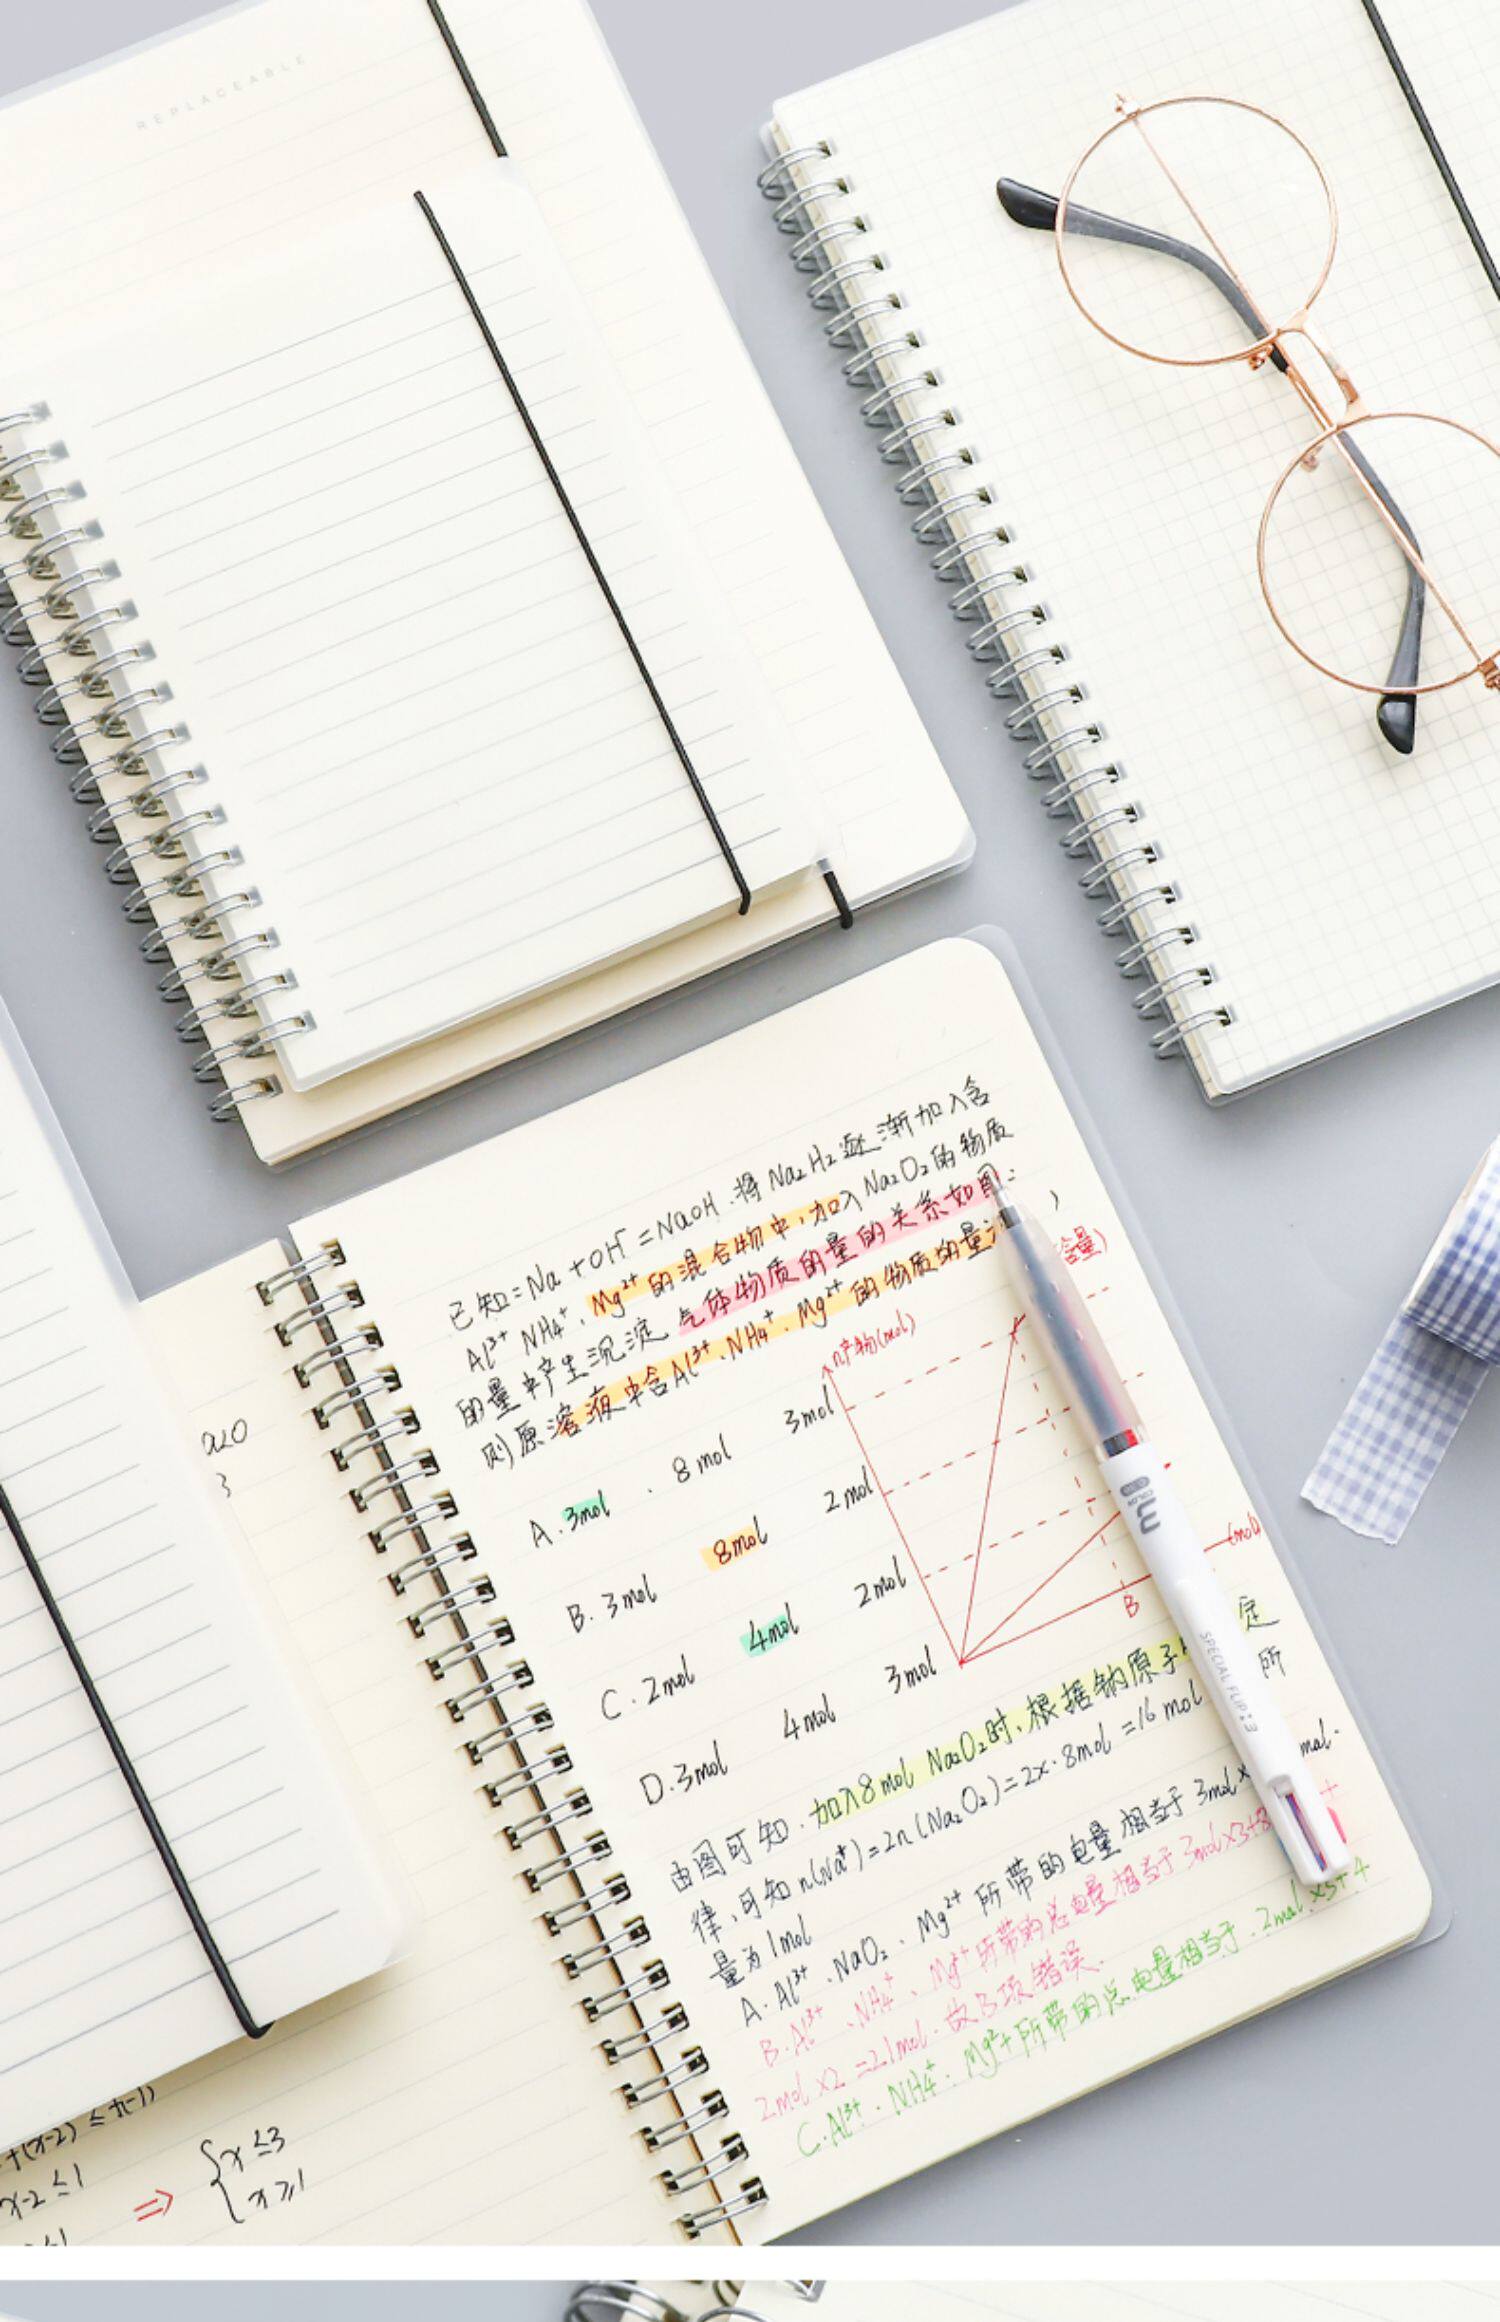 REPLACEABLE
已知=Na+OH⁻=NaOH.将Na₂H₂逐渐加入含
Al³⁺ NH₄⁺、Mg²⁺的混合物中,加入Na₂O₂的物质
的量中产生沉淀 气体物质的量的关系如图:
则原溶液中含Al³⁺、NH₄⁺、Mg²⁺的物质的量
)
含量)
n产物(mol)
A.3mol . 8mol 3mol
B.3mol 8mol 2mol
C.2mol 4mol 2mol
D.3mol 4mol 3mol
B
(mol
由图可知.加入8mol Na₂O₂时、根据钠原子 定
律、可知n(Na⁺)=2n(Na₂O₂)=2x·8mol=16mol 所
量为1mol
A.Al³⁺、NaO₂、Mg²⁺所带的电量相当于3mol× mol.
B.Al³⁺、NH₄⁺、Mg²⁺所带的总电量相当于3mol×3+8 +
2mol×2=21mol.故B项错误.
C.Al³⁺、NH₄⁺、Mg²⁺所带的总电量相当于.2mol×3+4
COLOR
SPECIAL FLIP:3
a≥0
3
+(x-2)≤+(-1)
x-2≤1
⇒ {x≤3
x≥1